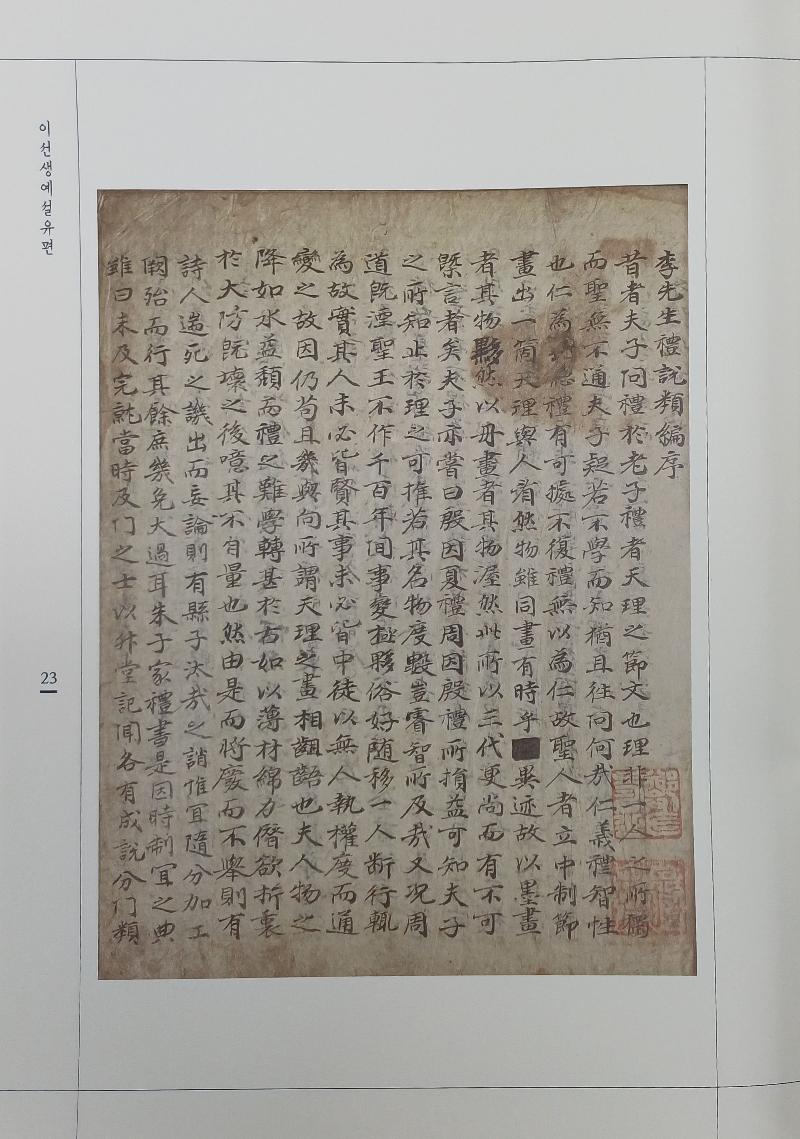 이선생예설유편
李先生禮說類編序
昔者夫子问禮於老子禮者天理之節文也理非一人之所獨
而聖無不通夫子疑若不學而知猶且往问何哉仁義禮智性
也仁為 禮有可據不復禮無以為仁故聖人者立中制節
畫出一箇天理與人看然物雖同畫有時乎 異迹故以墨畫
者其物黟然以丹畫者其物渥然此所以三代更尚而有不可
槩言者矣夫子亦嘗曰殷因夏禮周因殷禮所損益可知夫子
之所知止於理之可推若其名物度數豈睿智所及哉又況周
道既湮聖王不作千百年间事變極 俗好随移一人断行輒
為故實其人未必皆賢其事未必皆中徒以無人執權度而通
變之故因仍苟且幾與向所謂天理之畫相齟齬也夫人物之
降如水益頹而禮之難學轉甚於古如以薄材綿力僭欲折衷
於大防既壞之後噫其不自量也然由是而將廢而不舉則有
詩人遄死之譏出而妄論則有縣子汰哉之誚惟宜隨分加工
闕殆而行其餘庶幾免大過耳朱子家禮書是因時制宜之典
雖曰未及完就當時及门之士以升堂記闻各有成說分门類
23